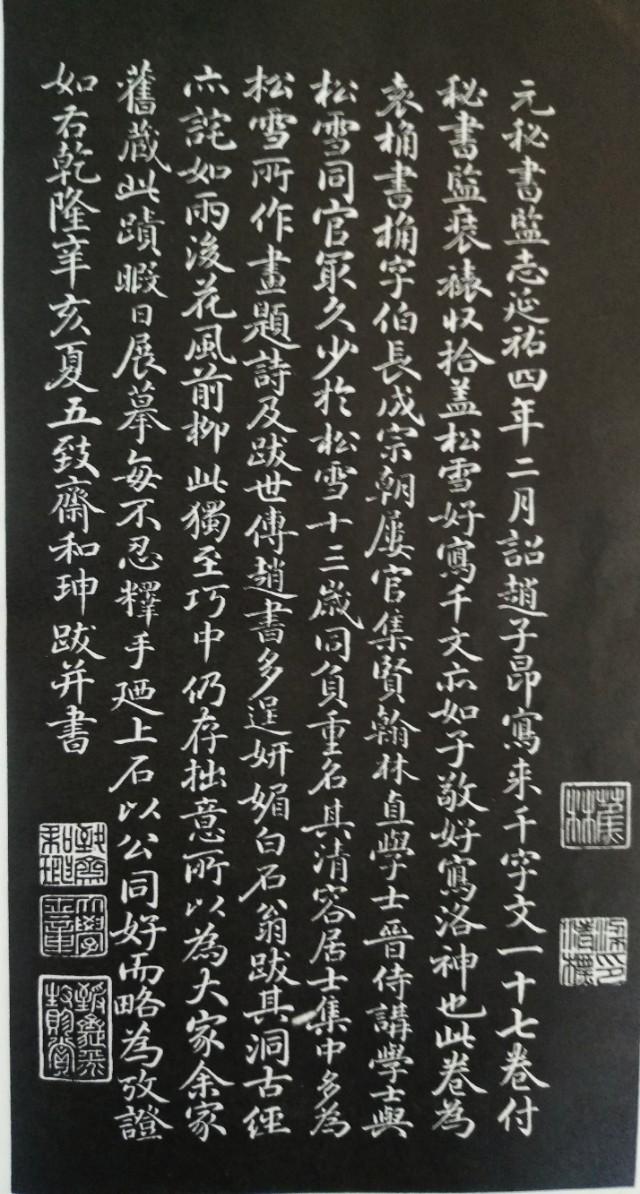 元秘書監志延祐四年二月詔趙子昂寫来千字文一十七卷付
秘書監裒裱収拾盖松雪好寫千文亦如子敬好寫洛神也此卷為
袁桷書桷字伯長成宗朝屢官集賢翰林直學士晉侍講學士與
松雪同官最久少於松雪十三嵗同負重名其清容居士集中多為
松雪所作畫題詩及跋世傳趙書多逞妍媚白石翁跋其洞古經
亦詫如雨後花風前柳此獨至巧中仍存拙意所以為大家余家
舊藏此蹟暇日展摹每不忍釋手廼上石以公同好而略為攷證
如右乾隆辛亥夏五致齋和珅跋并書
蕉林
致齋和珅
大學士章